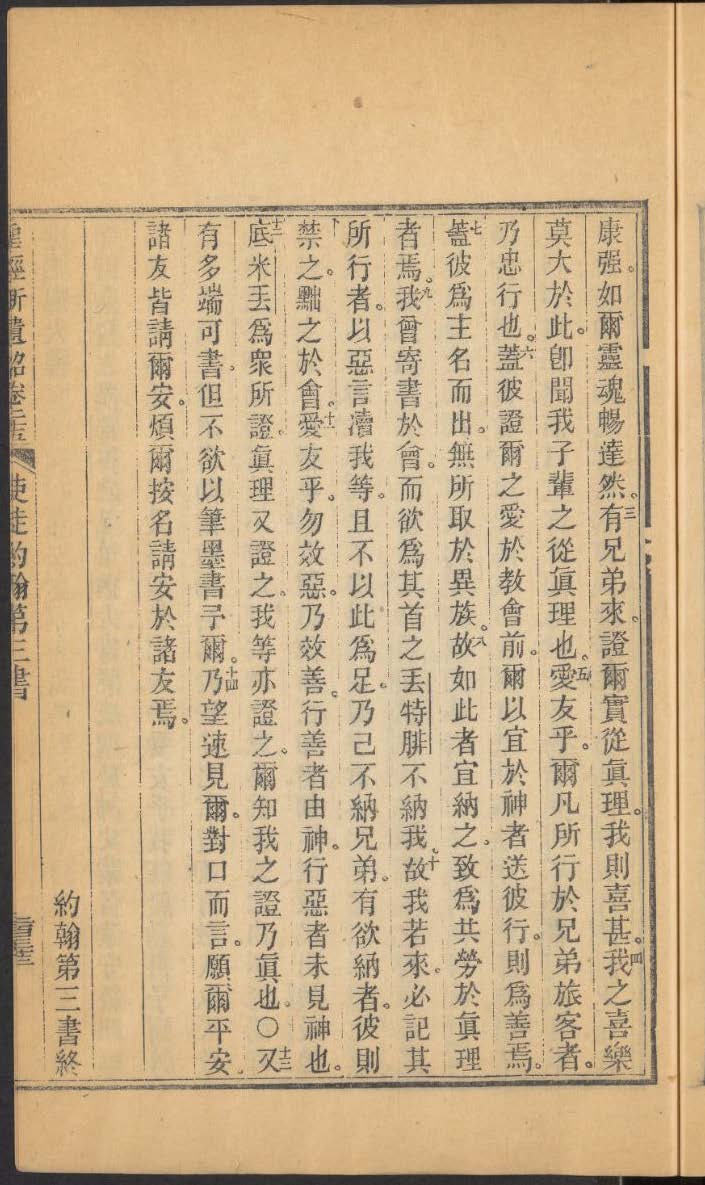 康强。如爾靈魂暢達然。三有兄弟來。證爾實從眞理。我則喜甚。四我之喜樂
莫大於此。卽聞我子輩之從眞理也。五愛友乎。爾凡所行於兄弟旅客者。
乃忠行也。六蓋彼證爾之愛於教會前。爾以宜於神者送彼行。則爲善焉。
七蓋彼爲主名而出。無所取於異族。八故如此者宜納之。致爲共勞於眞理
者焉。九我曾寄書於會。而欲爲其首之丟特腓不納我。十故我若來。必記其
所行者。以惡言凟我等。且不以此爲足。乃己不納兄弟。有欲納者。彼則
禁之。黜之於會。十一愛友乎。勿效惡。乃效善。行善者由神。行惡者未見神也。
十二底米丟爲衆所證。眞理又證之。我等亦證之。爾知我之證乃眞也。〇十三又
有多端可書。但不欲以筆墨書予爾。十四乃望速見爾。對口而言。願爾平安。
諸友皆請爾安。煩爾按名請安於諸友焉。
約翰第三書終
聖經新遺詔卷二十五 使徒約翰第三書